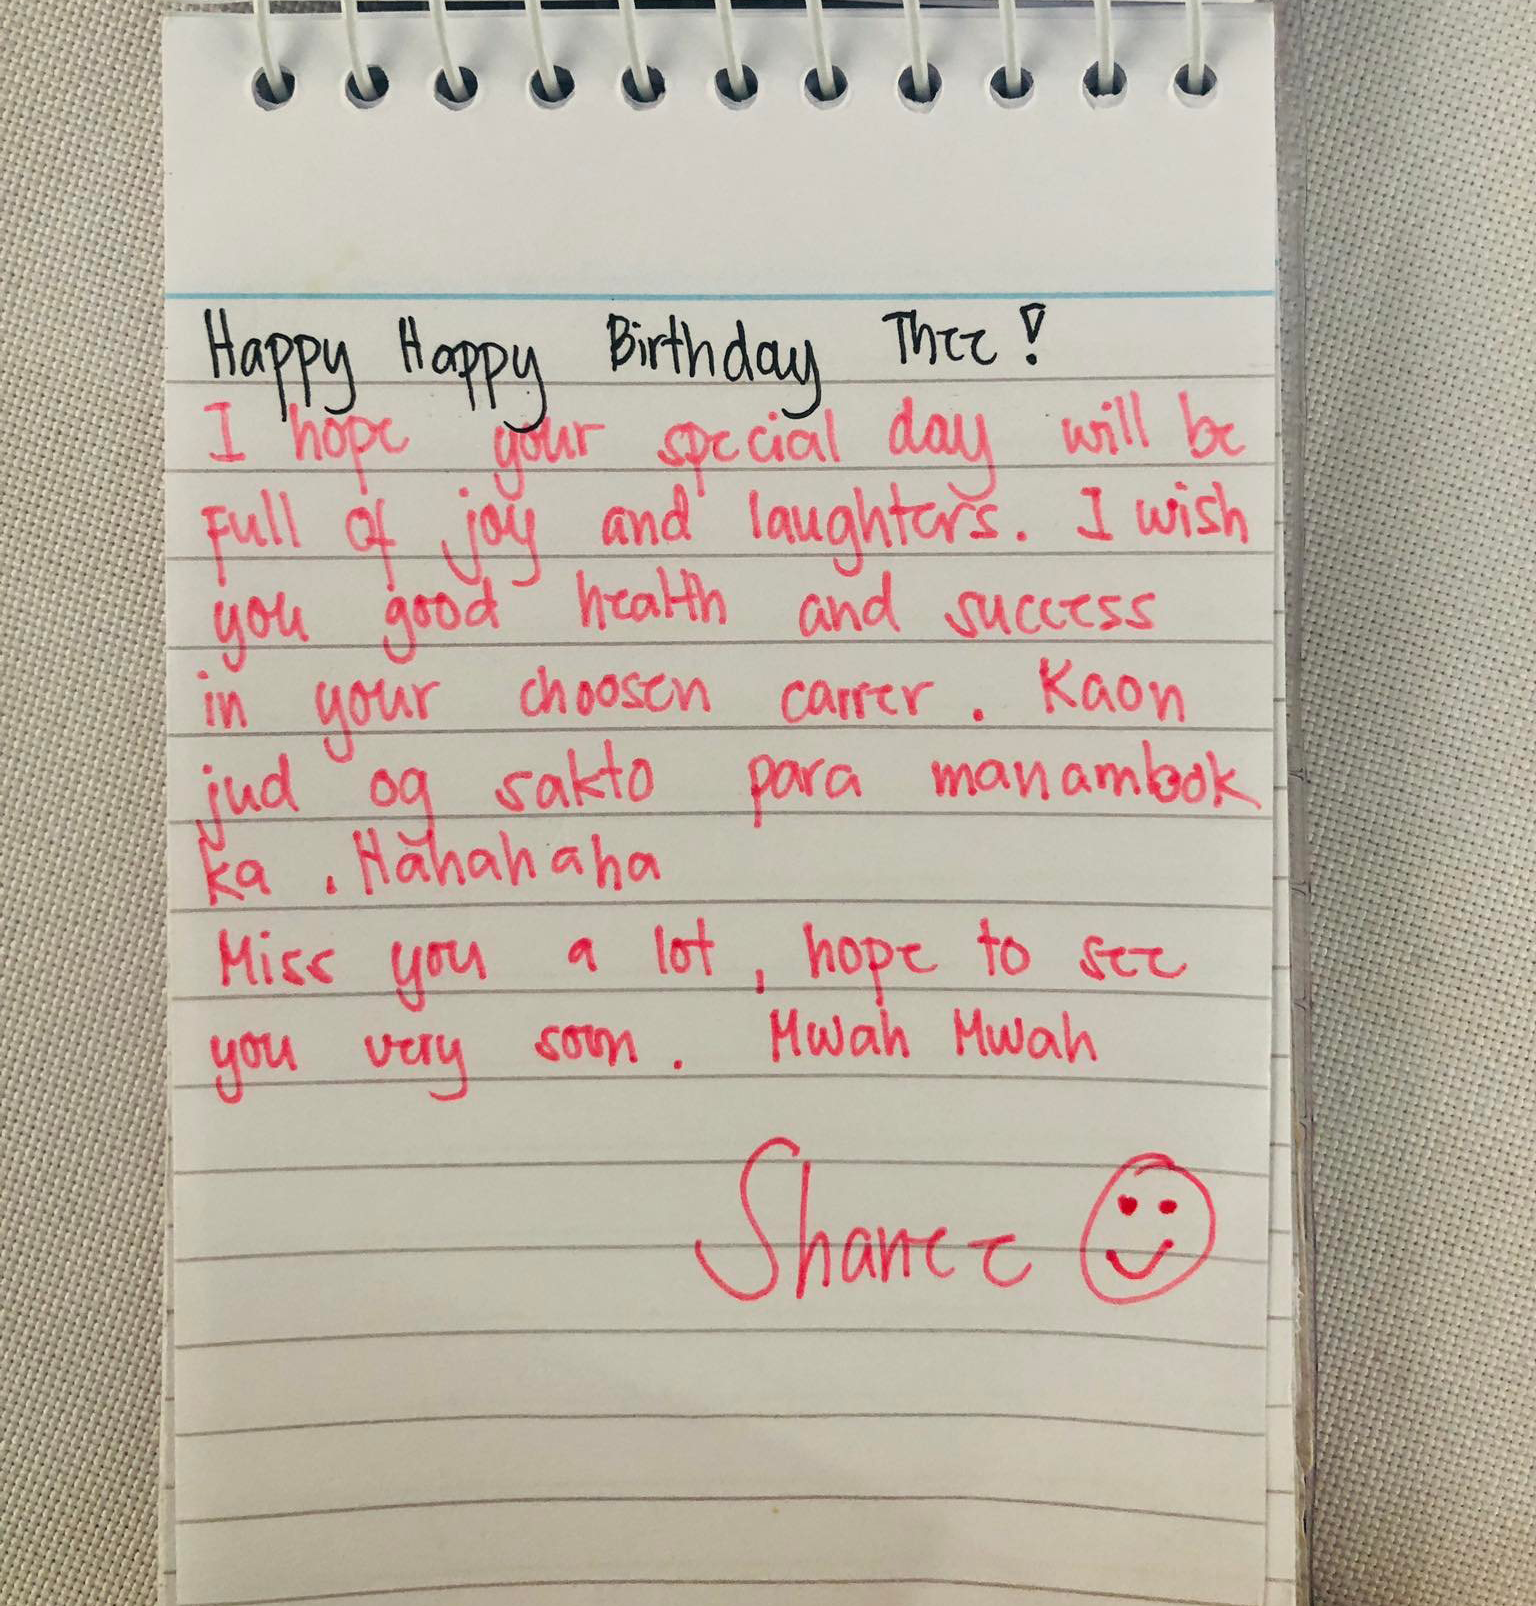 Happy Happy Birthday Thee!
I hope your special day will be
Full Of joy and laughters. I wish
you good health and success
in your choosen carrer. Kaon
jud og sakto para manambok
ka. Hahahaha
Miss you a lot, hope to see
you very soon. Mwah Mwah
Sharee